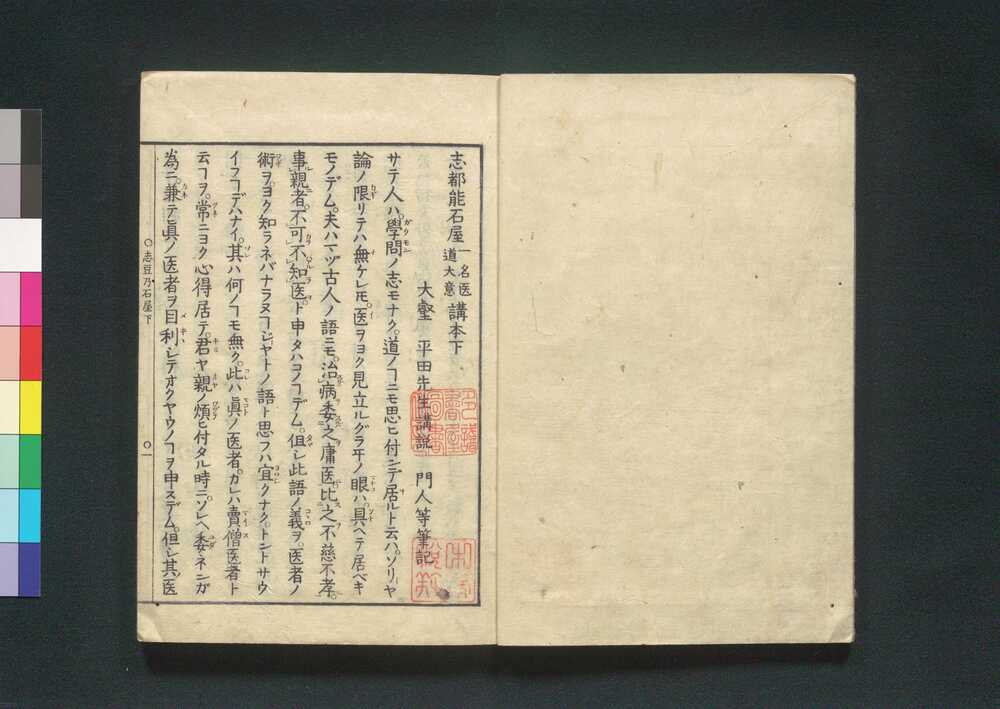 志都能石屋 一名医道大意 講本下
大壑 平田先生講説 門人等筆記
サテ人ハ。學問ノ志モナク。道ノコニモ思ヒ付シデ居ルト云ハ。ソリヤ
論ノ限リテハ無ケレ𪜈。医ヲヨク見立ルグラ井ノ眼ハ。具ヘテ居ベキ
モノデム。夫ハマヅ古人ノ語ニモ。治病委之庸医比之不慈不孝。
事親者。不可不知医。ト申タハコノコデム。但シ此語ノ義ヲ。医者ノ
術ヲ。ヨク知ラネバナラヌコジヤトノ語ト思フハ宜クナク。トントサウ
イフコデハナイ。其ハ何ノコモ無ク。此ハ眞ノ医者。カレハ賣僧医者ト
云コヲ。常ニヨク心得居テ。君ヤ親ノ煩ヒ付タル時ニ。ソレヘ委ネンガ
為ニ。兼テ眞ノ医者ヲ目利シテオクヤウノコヲ申スデム。但シ其医
○志豆乃石屋下 ○一